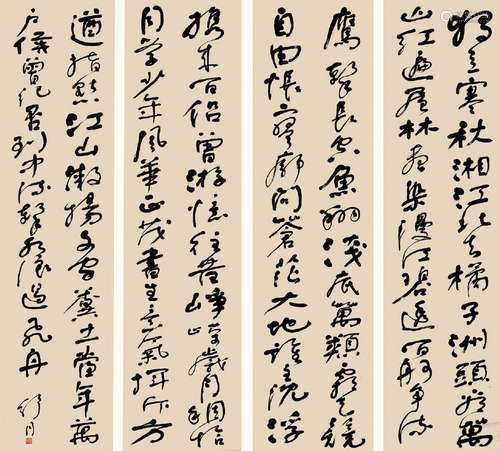 独立寒秋湘江北去橘子洲頭看萬
山红遍層林盡染漫江碧透百舸争流
鷹擊長空魚翔淺底萬類霜天競
自由悵寥廓問蒼茫大地誰主沉浮
携来百侣曾游憶往昔崢嶸歲月稠恰
同学少年風華正茂書生意氣揮斥方
遒指點江山激揚文字糞土當年萬
户侯曾记否到中流擊水浪遏飛舟
舒同